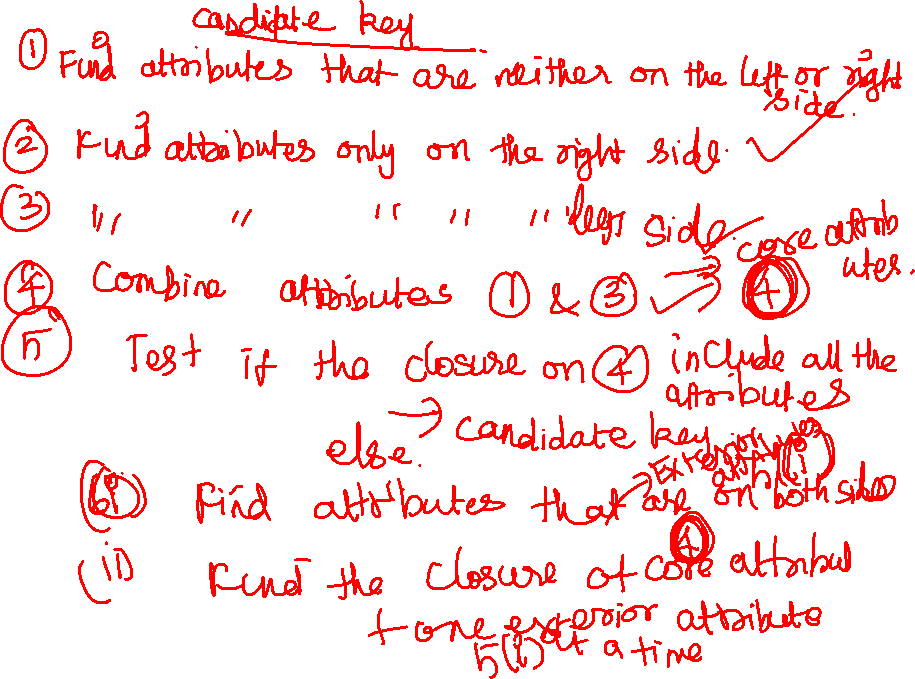 candidate key
① Find attributes that are neither on the left or right side.
② Find attributes only on the right side.
③ " " " " " left side.
④ Combine attributes ① & ③ → core attributes. ④
5 Test if the closure on ④ include all the attributes
→ candidate key
else.
(i) Find attributes that are on both sides → Exterior attributes
(ii) Find the closure of core attribut ④
+ one exterior attribute
5(i) at a time